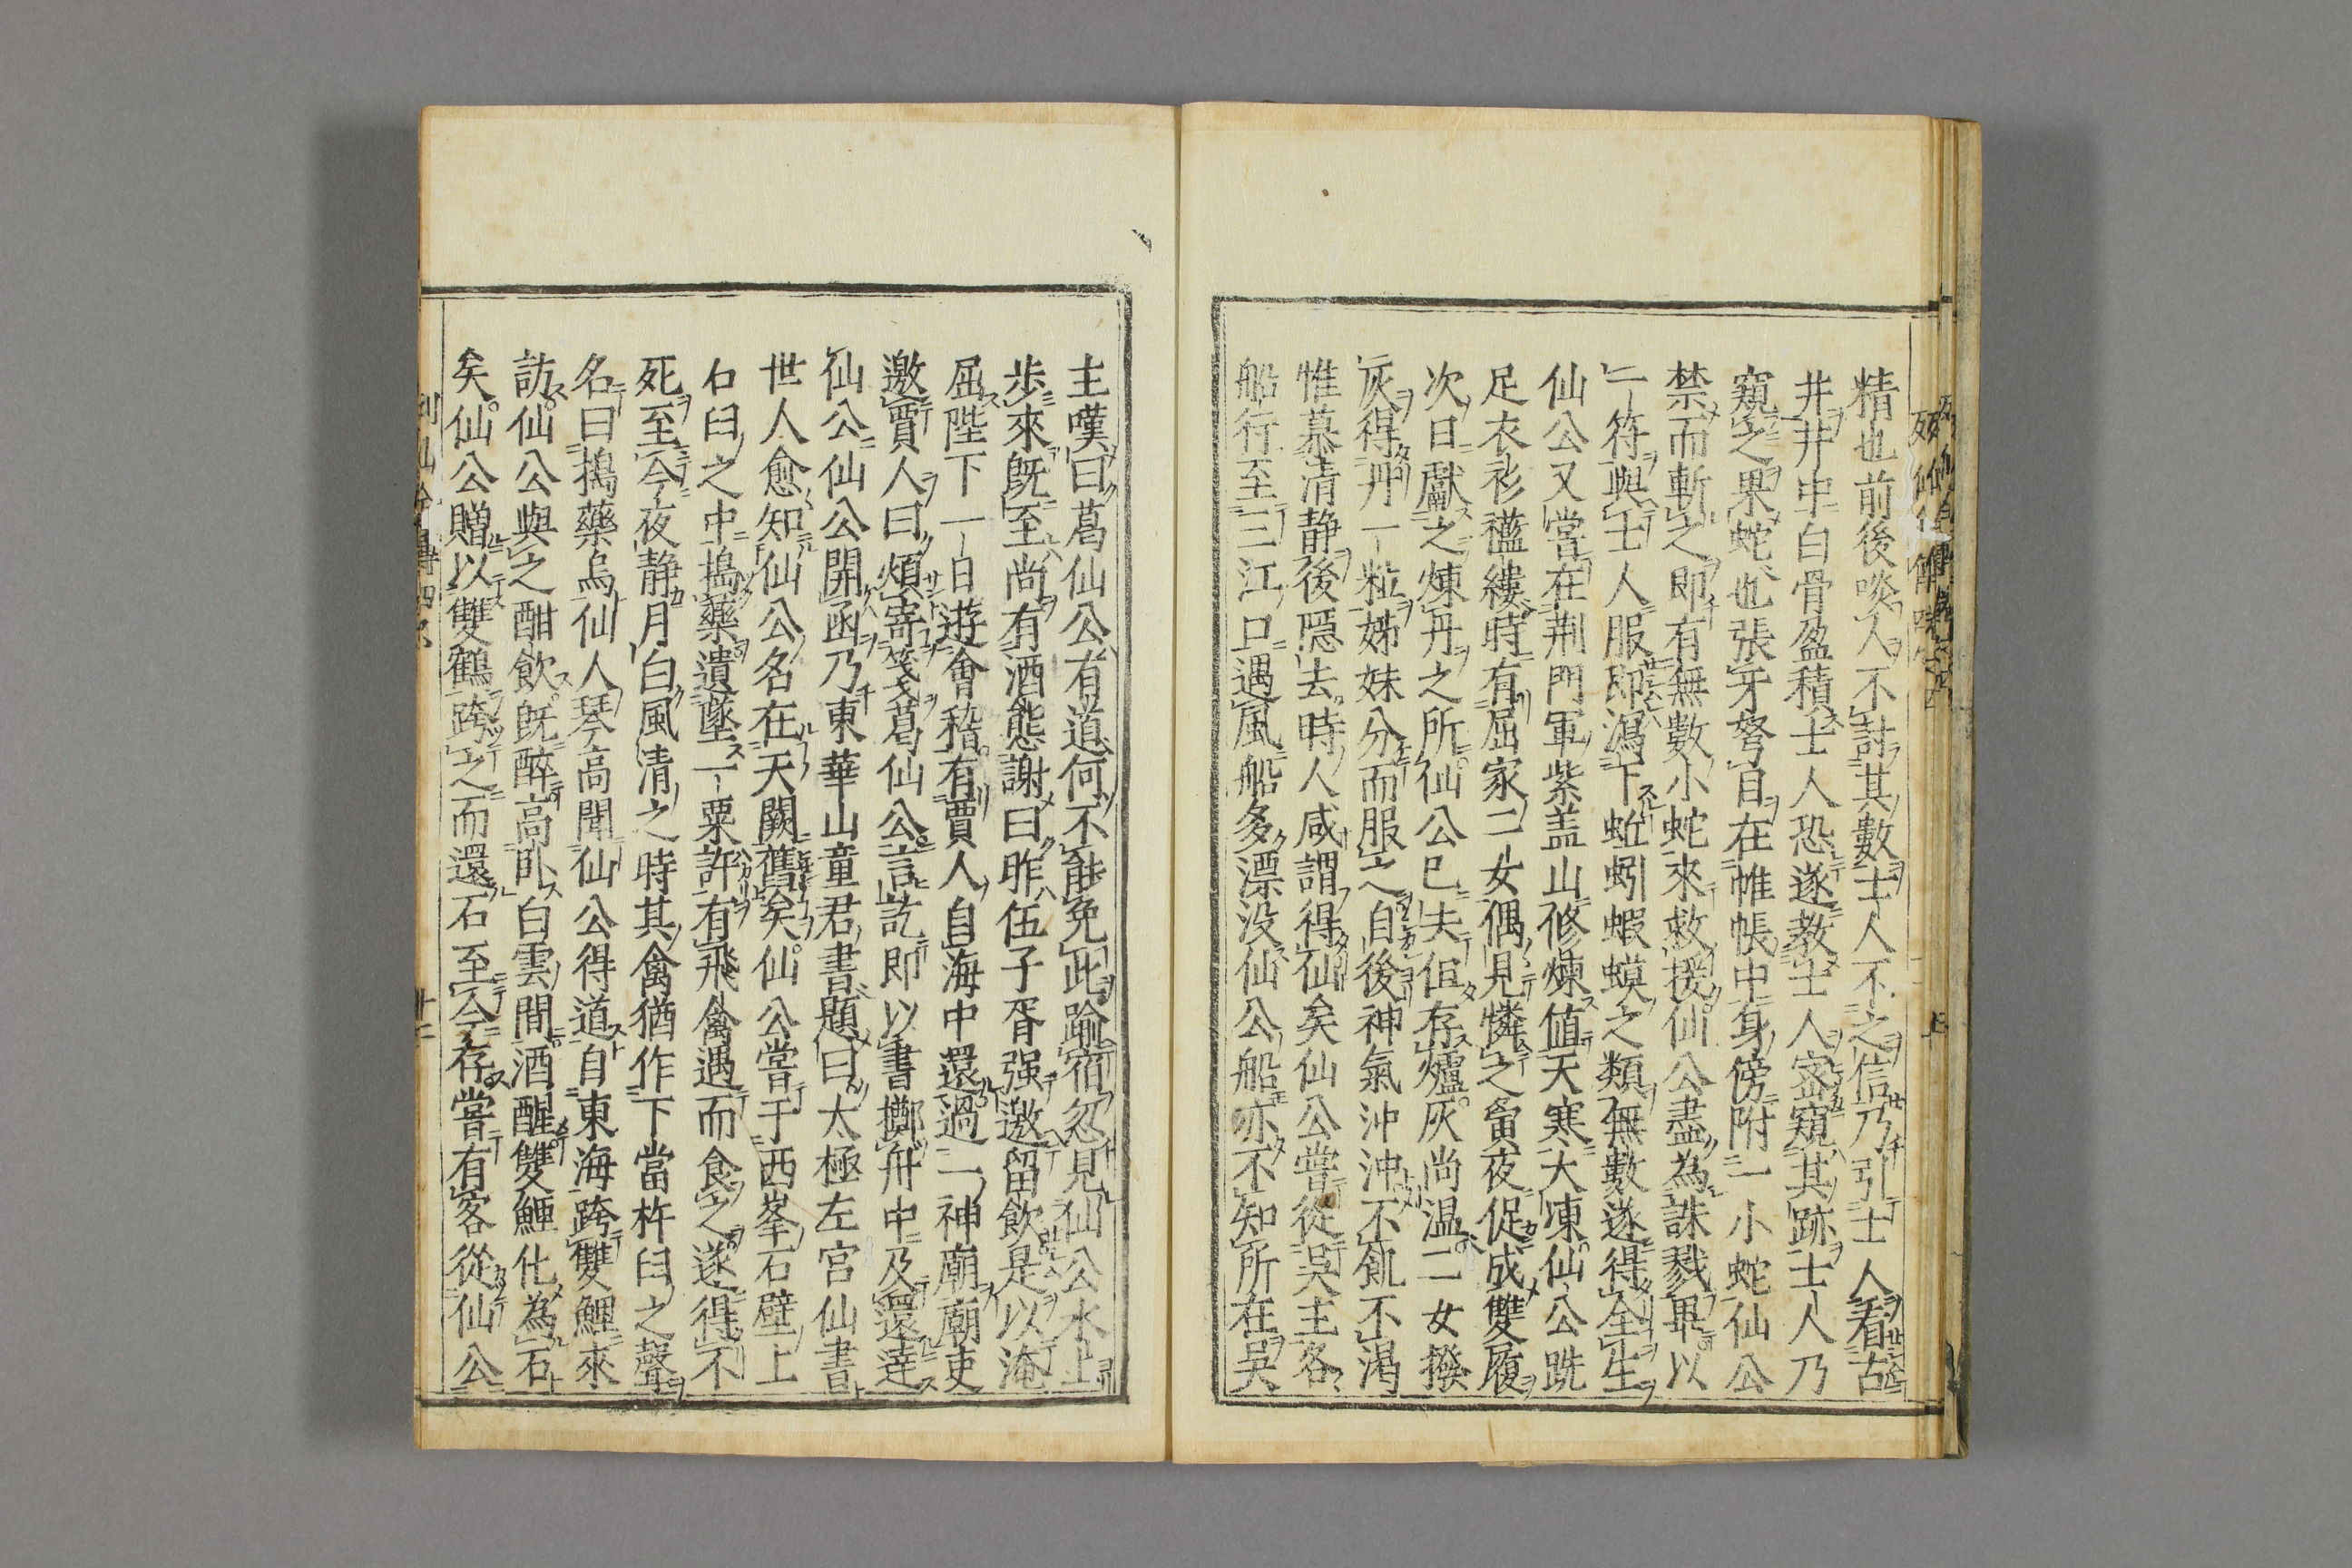 精也前後啖人不討其數士人不之信乃引士人看古
井井中白骨盈積士人恐遂教士人密窺其跡士人乃
窺之果蛇也張牙弩目在帷帳中身傍附一小蛇仙公
禁而斬之即有無數小蛇來救援仙公盡為誅戮畢以
一符與士人服即瀉下蚯蚓蝦蟆之類無數遂得全生
仙公又嘗在荆門軍紫盖山修煉値天寒大凍仙公跣
足衣衫襤縷時有屈家二女偶見憐之畱夜促成雙履
次日獻之煉丹之所仙公已去但存爐灰尚温二女撥
灰得丹一粒姊妹分而服之自後神氣沖沖不飢不渇
惟慕清静後隠去時人咸謂得仙矣仙公嘗從吳主各
船行至三江口遇風船多漂没仙公船亦不知所在吳
主嘆曰葛仙公有道何不能免此踰宿忽見仙公水上
歩來旣至尚有酒態謝曰昨伍子胥强邀留飲是以淹
屈陛下一日遊會稽有賈人自海中還過一神廟廟吏
邀賈人曰煩寄箋葛仙公言訖即以書擲舟中及還達
仙公仙公開函乃東華山童君書題曰太極左宮仙書
世人愈知仙公名在天闕舊矣仙公嘗于西峯石壁上
石臼之中搗藥遺墜一粟許有飛禽遇而食之遂得不
死至今夜静月白風清之時其禽猶作下當杵臼之聲
名曰搗藥烏仙人琴高聞仙公得道自東海跨雙鯉來
訪仙公與之酣飲旣醉高臥白雲間酒醒雙鯉化為石
矣仙公贈以雙鶴跨之而還石至今存嘗有客從仙公
列仙全傳四卷
十二